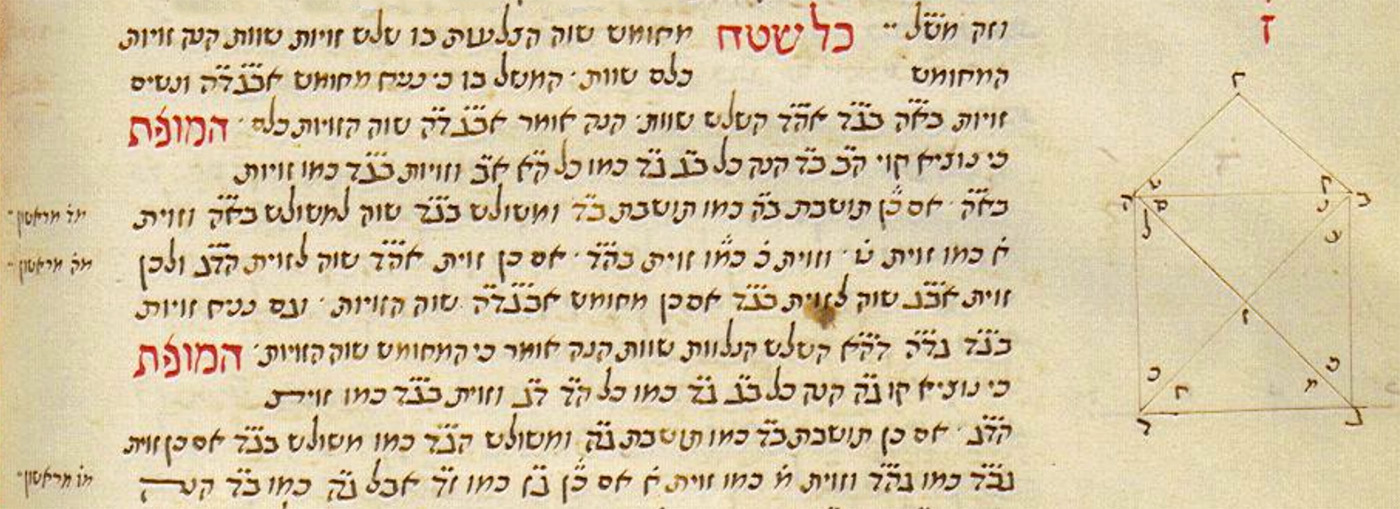 וזה משל ·· כל שטח מחומש שוה הצלעות בו שלש זויות שוות הנה זויות
המחומש כלם שוות· המשל בו כי נניח מחומש אבגדה ונשים
זויות באה בגד אהד השלש שוות· הנה אומר אבגדה שוה הזויות כלם· המופת
כי נוציא קוי הב בד הנה כל בג גד כמו כל הא אב וזויות בגד כמו זויות
באה· אם כן תושבת בה כמו תושבת בד ומשולש בגד שוה למשולש באה וזוית
ח כמו זוית ט· וזוית כ כמו זוית בהד· אם כן זוית אהד שוה לזוית הדג ולכן
זוית אבג שוה לזוית בגד אם כן מחומש אבגדה שוה הזויות· וגם נניח זויות
בגד גדה דהא השלש הנלוות שוות הנה אומר כי המחומש שוה הזויות· המופת
כי נוציא קו גה הנה כל בג גד כמו כל הד דג וזוית בגד כמו זוית
הדג· אם כן תושבת בד כמו תושבת גה ומשולש הגד כמו משולש בגד אם כן זוית
גבד כמו גהד וזוית מ כמו זוית ח אם כן גז כמו זד אבל גה כמו בד
מראשון
מראשון
מראשון
ז
ב
ה
ז
ג
ד